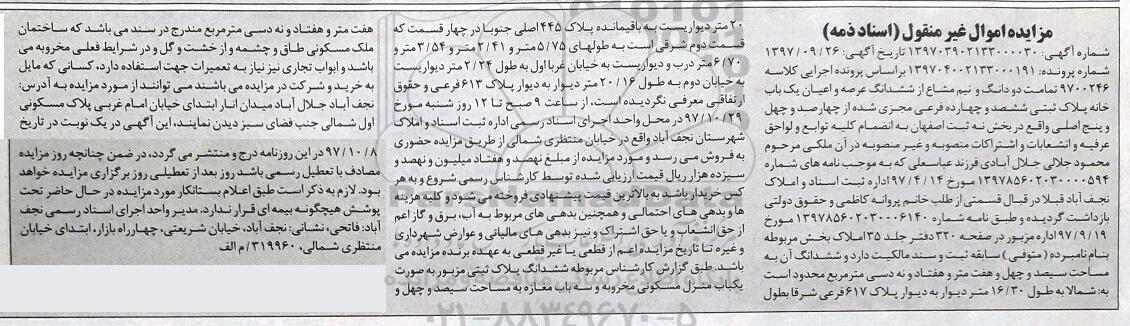 مزایده اموال غیر منقول (اسناد ذمه)
شماره آگهی: ۱۳۹۷۰۳۹۰۲۱۳۳۰۰۰۰۳۰ تاریخ آگهی: ۱۳۹۷/۰۹/۲۶
شماره پرونده: ۱۳۹۷۰۴۰۰۲۱۳۳۰۰۰۱۹۱ براساس پرونده اجرایی کلاسه
۹۷۰۰۲۴۶ تمامت دو دانگ و نیم مشاع از ششدانگ عرصه و اعیان یک باب
خانه پلاک ثبتی ششصد و چهارده فرعی مجزی شده از چهارصد و چهل
و پنج اصلی واقع در بخش نه ثبت اصفهان به انضمام کلیه توابع و لواحق
عرفیه و انشعابات و اشتراکات منصوبه و غیر منصوبه در آن ملکی مرحوم
محمود جلالی جلال آبادی فرزند عباسعلی که به موجب نامه های شماره
۱۳۹۷۸۵۶۰۲۰۳۰۰۰۰۵۹۴ مورخ ۹۷/۴/۱۴ اداره ثبت اسناد و املاک
نجف آباد قبلا در قبال قسمتی از طلب خانم پروانه کاظمی و حقوق دولتی
بازداشت گردیده و طبق نامه شماره ۱۳۹۷۸۵۶۰۲۰۳۰۰۰۶۱۴۰ مورخ
۹۷/۹/۱۹ اداره مزبور در صفحه ۳۲۰ دفتر جلد ۳۵ املاک بخش مربوطه
بنام نامبرده (متوفی) سابقه ثبت و سند مالکیت دارد و ششدانگ آن به
مساحت سیصد و چهل و هفت متر و هفتاد و نه دسی مترمربع محدود است
به: شمالا به طول ۱۶/۳۰ متر دیوار به دیوار پلاک ۶۱۷ فرعی شرقا بطول
۲۰ متر دیواریست به باقیمانده پلاک ۴۴۵ اصلی جنوبا در چهار قسمت که
قسمت دوم شرقی است به طولهای ۵/۷۵ متر و ۲/۴۱ متر و ۳/۵۴ متر و
۶/۷۰ متر درب و دیواریست به خیابان غربا اول به طول ۲/۲۴ متر دیواریست
به خیابان دوم به طول ۲۰/۱۶ متر دیوار به دیوار پلاک ۶۱۳ فرعی و حقوق
ارتفاقی معرفی نگردیده است، از ساعت ۹ صبح تا ۱۲ روز شنبه مورخ
۹۷/۱۰/۲۹ در محل واحد اجرای اسناد رسمی اداره ثبت اسناد و املاک
شهرستان نجف آباد واقع در خیابان منتظری شمالی از طریق مزایده حضوری
به فروش می رسد و مورد مزایده از مبلغ نهصد و هفتاد میلیون و نهصد و
سیزده هزار ریال قیمت ارزیابی شده توسط کارشناس رسمی شروع و به هر
کس خریدار باشد به بالاترین قیمت پیشنهادی فروخته می شود و کلیه هزینه
ها و بدهی های احتمالی و همچنین بدهی های مربوط به آب، برق و گاز اعم
از حق انشعاب و یا حق اشتراک و نیز بدهی های مالیاتی و عوارض شهرداری
و غیره تا تاریخ مزایده اعم از قطعی یا غیر قطعی به عهده برنده مزایده می
باشد. طبق گزارش کارشناس مربوطه ششدانگ پلاک ثبتی مزبور به صورت
یکباب منزل مسکونی مخروبه و سه باب مغازه به مساحت سیصد و چهل و
هفت متر و هفتاد و نه دسی مترمربع مندرج در سند می باشد که ساختمان
ملک مسکونی طاق و چشمه و از خشت و گل و در شرایط فعلی مخروبه می
باشد و ابواب تجاری نیز نیاز به تعمیرات جهت استفاده دارد، کسانی که مایل
به خرید و شرکت در مزایده می باشند می توانند از مورد مزایده به آدرس:
نجف آباد جلال آباد میدان انار ابتدای خیابان امام غربی پلاک مسکونی
اول شمالی جنب فضای سبز دیدن نمایند، این آگهی در یک نوبت در تاریخ
۹۷/۱۰/۸ در این روزنامه درج و منتشر می گردد، در ضمن چنانچه روز مزایده
مصادف با تعطیل رسمی باشد روز بعد از تعطیلی روز برگزاری مزایده خواهد
بود. لازم به ذکر است طبق اعلام بستانکار مورد مزایده در حال حاضر تحت
پوشش هیچگونه بیمه ای قرار ندارد. مدیر واحد اجرای اسناد رسمی نجف
آباد: فاتحی، نشانی: نجف آباد، خیابان شریعتی، چهارراه بازار، ابتدای خیابان
منتظری شمالی، ۳۱۹۹۶۰/م الف
۰۲۱-۸۸۳۴۹۶۷۰-۵